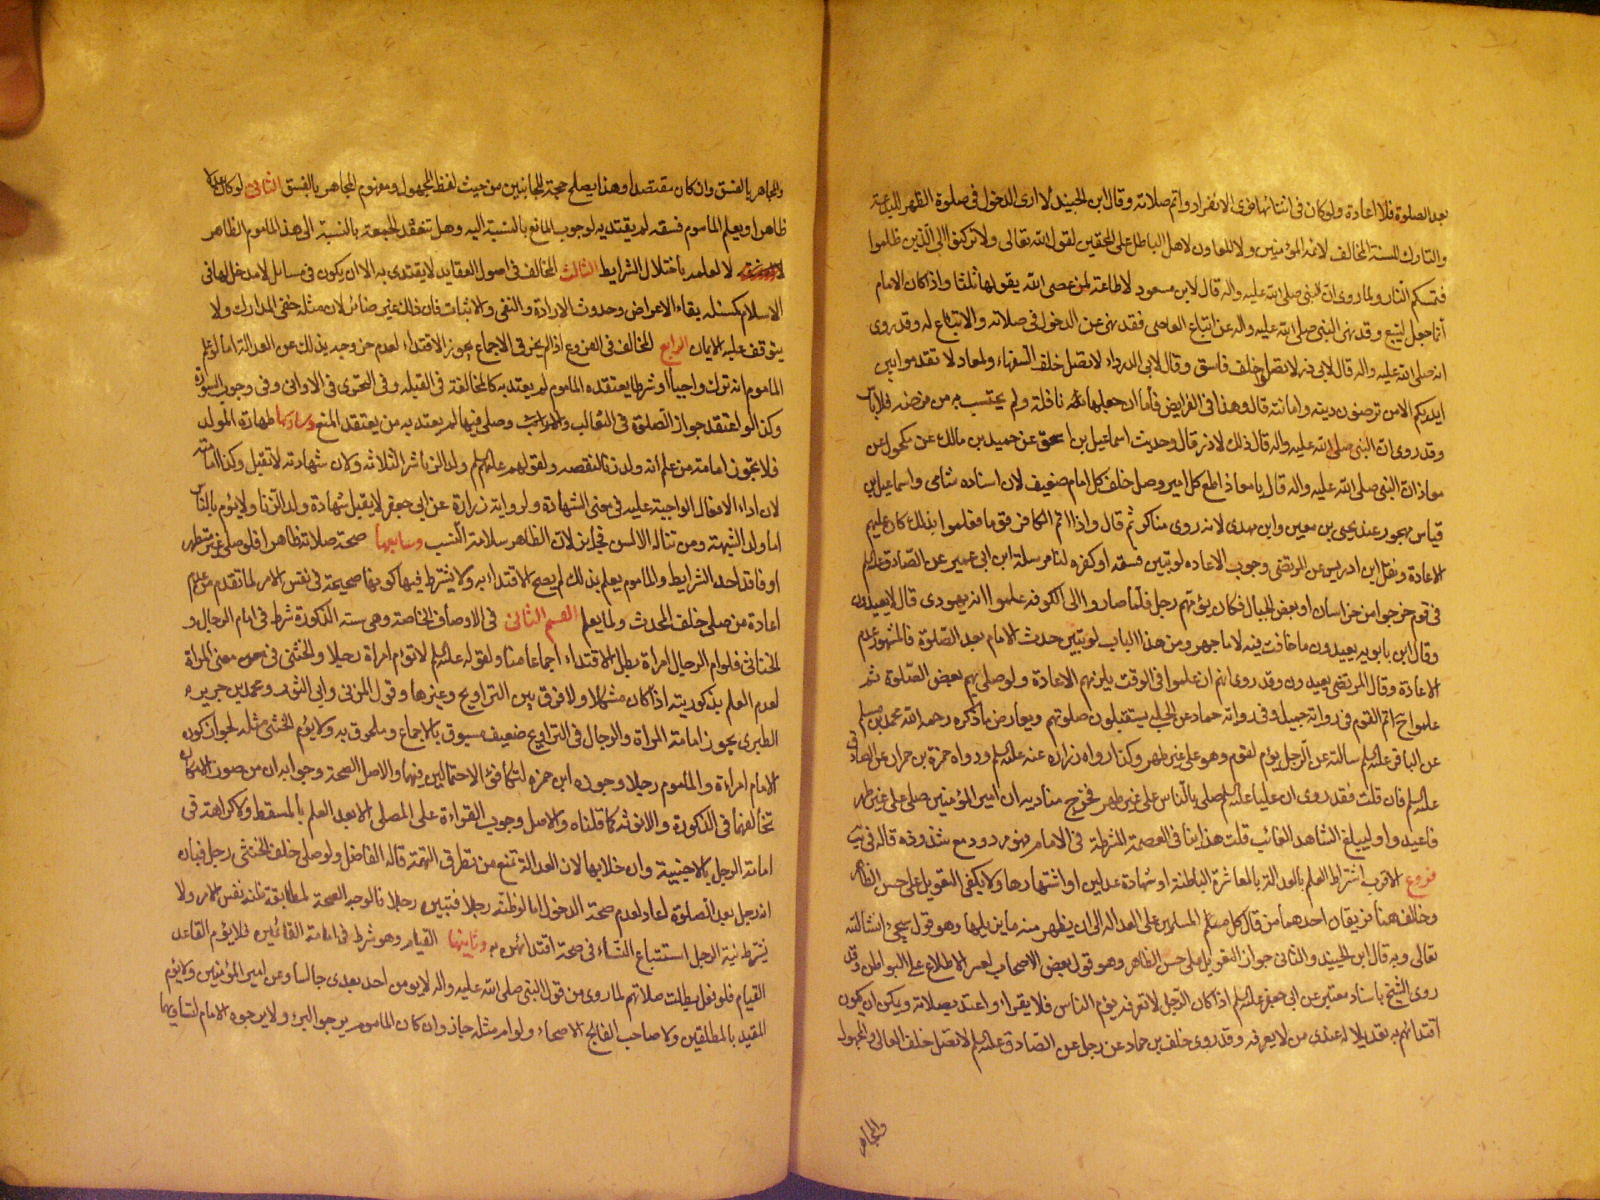 بعد الصلوة فلا اعادة ولو كان في اثنائها نوى الانفراد واتم صلاته وقال ابن الجنيد لا ارى الدخول في صلوة الظهر للبدعة
والتارك للسنة المخالف لائمة المؤمنين ولا للمعاون لاهل الباطل على المحقين لقول الله تعالى ولا تركنوا الى الذين ظلموا
فتمسكم النار ولما روى ان النبي صلى الله عليه واله قال لابن مسعود لا طاعة لمن عصى الله يقولها ثلثا واذا كان الامام
انما جعل ليتبع وقد نهى النبي صلى الله عليه واله عن اتباع العاصي فقد نهى عن الدخول في صلاته والاتباع له وقد روى
انه صلى الله عليه واله قال لابي ذر لا تصل خلف فاسق وقال لابي الدرداء لا تصل خلف السفهاء ولمعاذ لا تقدموا بين
ايديكم الا من ترضون دينه وامانته قال وهذا في الفرايض فأما ان جعلها نافلة ولم يحتسب به من فرضه فلا بأس
وقد روى ان النبي صلى الله عليه واله قال ذلك لابي ذر قال وحديث اسماعيل بن اسحق عن حميد بن مالك عن مكحول عن
معاذ ان النبي صلى الله عليه واله قال يا معاذ اطع كل امير وصل خلف كل امام ضعيف لان اسناده شامي واسماعيل بن
قياس مهجور عند يحيى بن معين وابن مهدى لانه روى مناكر ثم قال واذا ام الكافر قوما فعلموا بذلك كان عليهم
الاعادة ونقل ابن ادريس عن المرتضى وجوب الاعاده لو تبين فسقه او كفره لنا مرسلة ابن ابي عمير عن الصادق عليه السلم
في قوم خرجوا من خراسان او بعض الجبال فكان يؤمهم رجل فلما صاروا الى الكوفه علموا انه يهودى قال لا يعيدون
وقال ابن بابويه يعيدون ما خافت فيه لا ما جهر ومن هذا الباب لو تبين حدث الامام بعد الصلوة فالمشهور عدم
الاعادة وقال المرتضى يعيدون وقد روى انهم ان علموا في الوقت يلزمهم الاعادة ولو صلى بهم بعض الصلوة ثم
علموا ح اتم القوم في رواية جميل وفي رواية حماد عن الحلبي يستقبلون صلوتهم ويعارض ما ذكره رحمه الله محمد بن مسلم
عن الباقر عليه السلم سالته عن الرجل يؤم القوم وهو على غير طهر وكذا رواه زراره عنه عليه السلم ورواه حمزة بن حمران عن الصادق
عليه السلم فان قلت فقد روى ان عليا عليه السلم صلى بالناس على غير طهر فخرج مناديه ان امير المؤمنين صلى على غير طهر
فاعيدوا وليبلغ الشاهد الغائب قلت هذا ينافى العصمة المشترطة في الامام فهو مردود مع شذوذه قاله في يب
فروع الاقرب اشتراط العلم بالعدالة بالمعاشرة الباطنة او شهادة عدلين او اشتهارها ولا يكفى التعويل على حسن الظاهر
وخالف هنا فريقان احدهما من قال كل مسلم على العدالة الى ان يظهر منه ما يزيلها وهو قول سيجئ انشالله
تعالى وبه قال ابن الجنيد والثاني جواز التعويل على حسن الظاهر وهو قول بعض الاصحاب لعسر الاطلاع على البواطن وقد
روى الشيخ باسناد معتبر عن ابي جعفر عليه السلم اذا كان الرجل لا تعرفه يؤم الناس فلا يقرا واعتد بصلاته ويمكن ان يكون
اقتدائهم به تعديلا له عندى من لا يعرفه وقد روى خلف بن حماد عن رجل عن الصادق عليه السلم لا تصل خلف الغالى والمجهول
والمجاهر
والمجاهر بالفسق وان كان مقتصدا وهذا يصلح حجة للجانبين من حيث لفظ المجهول ومفهوم المجاهر بالفسق الثاني لو كان عدلا
ظاهرا ويعلم الماموم فسقه لم يقتد به لوجوب المانع بالنسبة اليه وهل تنعقد الجمعة بالنسبة الى هذا الماموم الظاهر
لا لعلمه باختلال الشرايط الثالث المخالف في اصول العقايد لا يقتدى به الا ان يكون في مسايل لا مدخل لها في
الاسلام كمسئلة بقاء الاعراض وحدوث الارادة والنفى والاثبات فان ذلك غير ضائر لان مثله خفى المدارك ولا
يتوقف عليه الايمان الرابع المخالف في الفروع اذا لم يخرق الاجماع يجوز الاقتداء لعدم خروجه بذلك عن العدالة اما لو علم
الماموم انه ترك واجبا او شرطا يعتقده الماموم لم يعتد به كالمخالفة في القبلة وفى التحرى في الاوانى وفى وجوب السورة
وكذا لو اعتقد جواز الصلوة في الثعالب والارانب وصلى فيها لم يعتد به من يعتقد المنع وسادسها طهارة المولد
فلا تجوز امامة من علم انه ولد زنا لنقصه ولقولهم عليهم السلم ولد الزنا شر الثلاثة ولان شهادته لا تقبل وكذا امامته
لان اداء الافعال الواجبة عليه في معنى الشهادة ولرواية زرارة عن ابي جعفر لا يقبل شهادة ولد الزنا ولا يؤم بالناس
اما ولد الشبهة ومن تناله الالسن فجايز لان الظاهر سلامة النسب وسابعها صحة صلاته ظاهرا فلو صلى غير متطهر
او فاقد احد الشرايط والماموم يعلم بذلك لم يصح الاقتداء به ولا يشترط فيها كونها صحيحة في نفس الامر لما تقدم من عدم
اعادة من صلى خلف المحدث ولما يعلم القسم الثاني في الاوصاف الخاصة وهى ستة الذكورة شرط في امام الرجال و
الخناثى فلو ام الرجال امراة بطل الاقتداء اجماعا منا ولقوله عليه السلم لا تؤم امراة رجلا والخنثى في معنى المراة
لعدم العلم بذكوريته اذا كان مشكلا ولا فرق بين التراويح وغيرها وقول المزنى وابي الثور ومحمد بن جرير
الطبرى يجوز امامة المراة والرجال في التراويح ضعيف مسبوق بالاجماع وملحوق به ولا يؤم الخنثى مثله لجواز كون
الامام امراة والماموم رجلا وجوزه ابن حمزه لتكافؤ الاحتمالين فيهما والاصل الصحة وجوابه ان من صور الامكان
تخالفهما في الذكورة والانوثة كما قلناه والاصل وجوب القراءة على المصلى الا بعد العلم بالمسقط ولا كراهة في
امامة الرجل بالاجنبية وان خلا بها لان العدالة تمنع من تطرق التهمة قاله الفاضل ولو صلى خلف الخنثى رجل فبان
انه رجل بعد الصلوة اعاد لعدم صحة الدخول اما لو ظنه رجلا فتبين رجلا فالوجه الصحة لمطابقة ظنه نفس الامر ولا
يشترط نية الرجل استتباع النساء في صحة اقتدائهن به وثانيها القيام وهو شرط في امامة القائمين فلا يؤم القاعد
القيام فلو فعل بطلت صلاتهم لما روى من قول النبي صلى الله عليه واله لا يؤمن احد بعدى جالسا وعن امير المؤمنين ولا يؤم
المقيد بالمطلقين ولا صاحب الفالج الاصحاء ولو ام مثله جاز وان كان الماموم يرجو البرء ولا يرجوه الامام لتساويهما